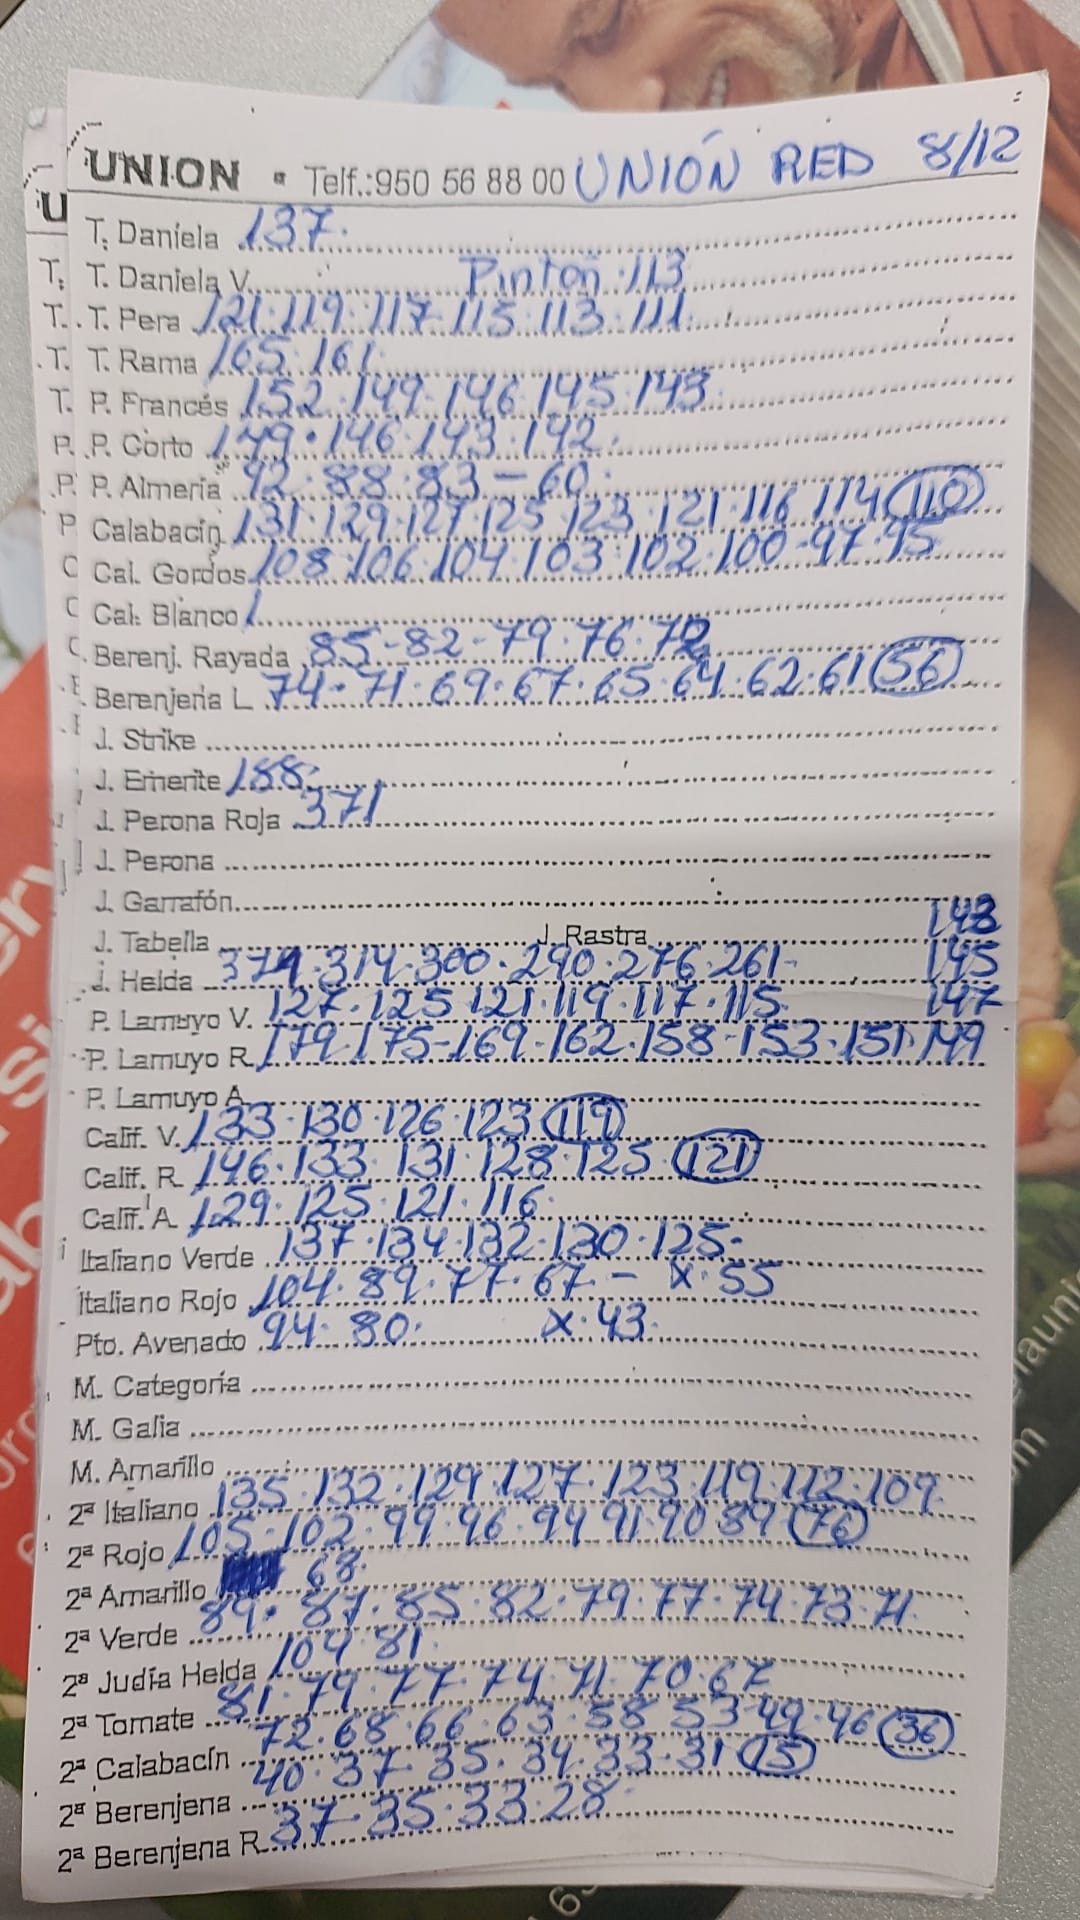 UNION ▪ Telf.:950 56 88 00 UNIÓN RED 8/12
T. Daniela 137.
T. Daniela V. Pinton 113
T. Pera 121.119.117-115.113.111.
T. Rama 165.161.
P. Francés 152.149.146.145.143
P. Corto 149.146.143.142.
P. Almería 92.88.83-60.
Calabacín 131.129.127.125.123.121.116 114 110
Cal. Gordos 108.106.104.103.102.100-97.95
Cal. Blanco
Berenj. Rayada 85-82-79.76.72
Berenjena L 74.71.69.67.65.64.62.61 56
J. Strike
J. Emerite 188.
J. Perona Roja 371
J. Perona
J. Garrafón
J. Tabella J. Rastra 143
J. Helda 374.314.300.290.276.261- 145
P. Lamuyo V. 127.125 121.119.117.115. 147
P. Lamuyo R. 179.175-169-162.158-153.151.149
P. Lamuyo A.
Calif. V. 133.130.126.123 119
Calif. R. 146.133.131.128.125. 121
Calif. A. 129.125.121.116.
Italiano Verde 137.134.132.130.125-
Italiano Rojo 104.89.77.67.- X.55
Pto. Avenado 94.80. X.43.
M. Categoría
M. Galia
M. Amarillo
2ª Italiano 135.132.129.127.123.119.112.109.
2ª Rojo 105-102.99.96.94 91.90 89 76
2ª Amarillo 68.
2ª Verde 89.87.85.82.79.77.74.73.71.
2ª Judía Helda 104.81.
2ª Tomate 81.79.77.74.71.70.67
2ª Calabacín 72.68.66.63.58 53-49.46 36
2ª Berenjena 40.37.35.34.33.31 15
2ª Berenjena R. 37-35.33.28.